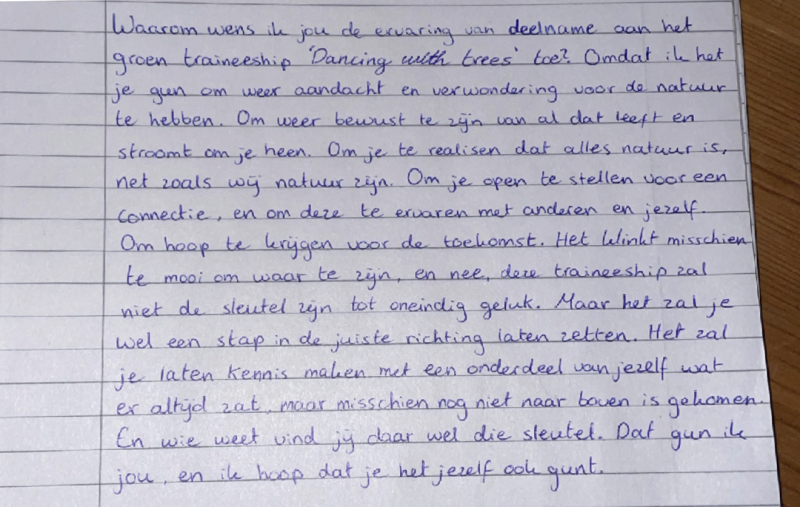 Waarom wens ik jou de ervaring van deelname aan het
groen traineeship 'Dancing with trees' toe? Omdat ik het
je gun om weer aandacht en verwondering voor de natuur
te hebben. Om weer bewust te zijn van al dat leeft en
stroomt om je heen. Om je te realisen dat alles natuur is,
net zoals wij natuur zijn. Om je open te stellen voor een
connectie, en om deze te ervaren met anderen en jezelf.
Om hoop te krijgen voor de toekomst. Het klinkt misschien
te mooi om waar te zijn, en nee, deze traineeship zal
niet de sleutel zijn tot oneindig geluk. Maar het zal je
wel een stap in de juiste richting laten zetten. Het zal
je laten kennis maken met een onderdeel van jezelf wat
er altijd zat, maar misschien nog niet naar boven is gekomen.
En wie weet vind jij daar wel die sleutel. Dat gun ik
jou, en ik hoop dat je het jezelf ook gunt.